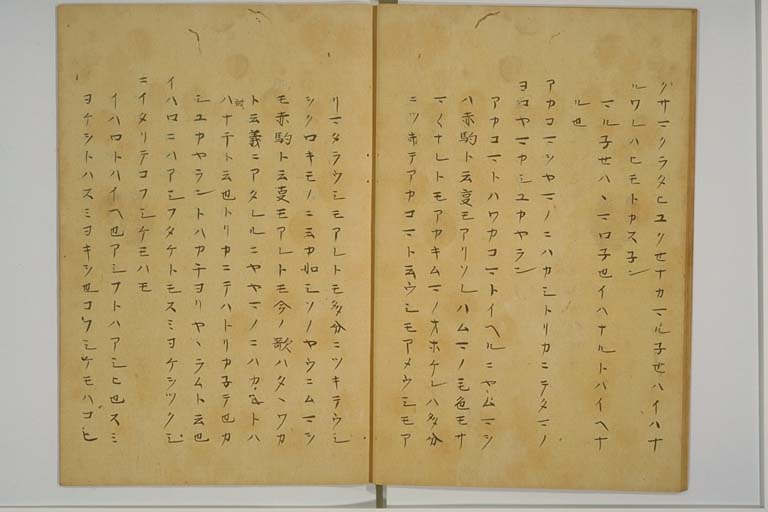 クサマクラタヒユクセナカマル子セハイハナ
ルワレハヒモトカス子ン
マル子セハヽマロ子也イハナルトハイヘナ
ル也
アカコマヲヤマノニハカシトリカニテタマノ
ヨコヤマカシユカヤラン
アカコマトハワカコマトイヘルニヤムマヲ
ハ赤駒ト云夏モアリソレハムマノ毛色モサ
マ〱ナレトモアカキムマノオホケレハ多分
ニツキテアカコマト云ウシモアメウシモア
リマタラウシモアレトモ多分ニツキテウシ
ヲクロキモノニ云カ如シソノヤウニムマヲ
モ赤駒ト云夏モアレトモ今ノ歌ハタヽワカ
ト云義ニアタレルニヤヤマノニハカシトハ
ハナチト云也トリカニテハトリカ子テ也カ
シユカヤラントハカチヨリヤヽラムト云也
イハロニハアシフタケトモスミヨケヲツクシ
ニイタリテコフシケモハモ
イハロトハイヘ也アシフトハアシヒ也スミ
ヨケヲトハスミヨキヲ也コフシケモハコヒ